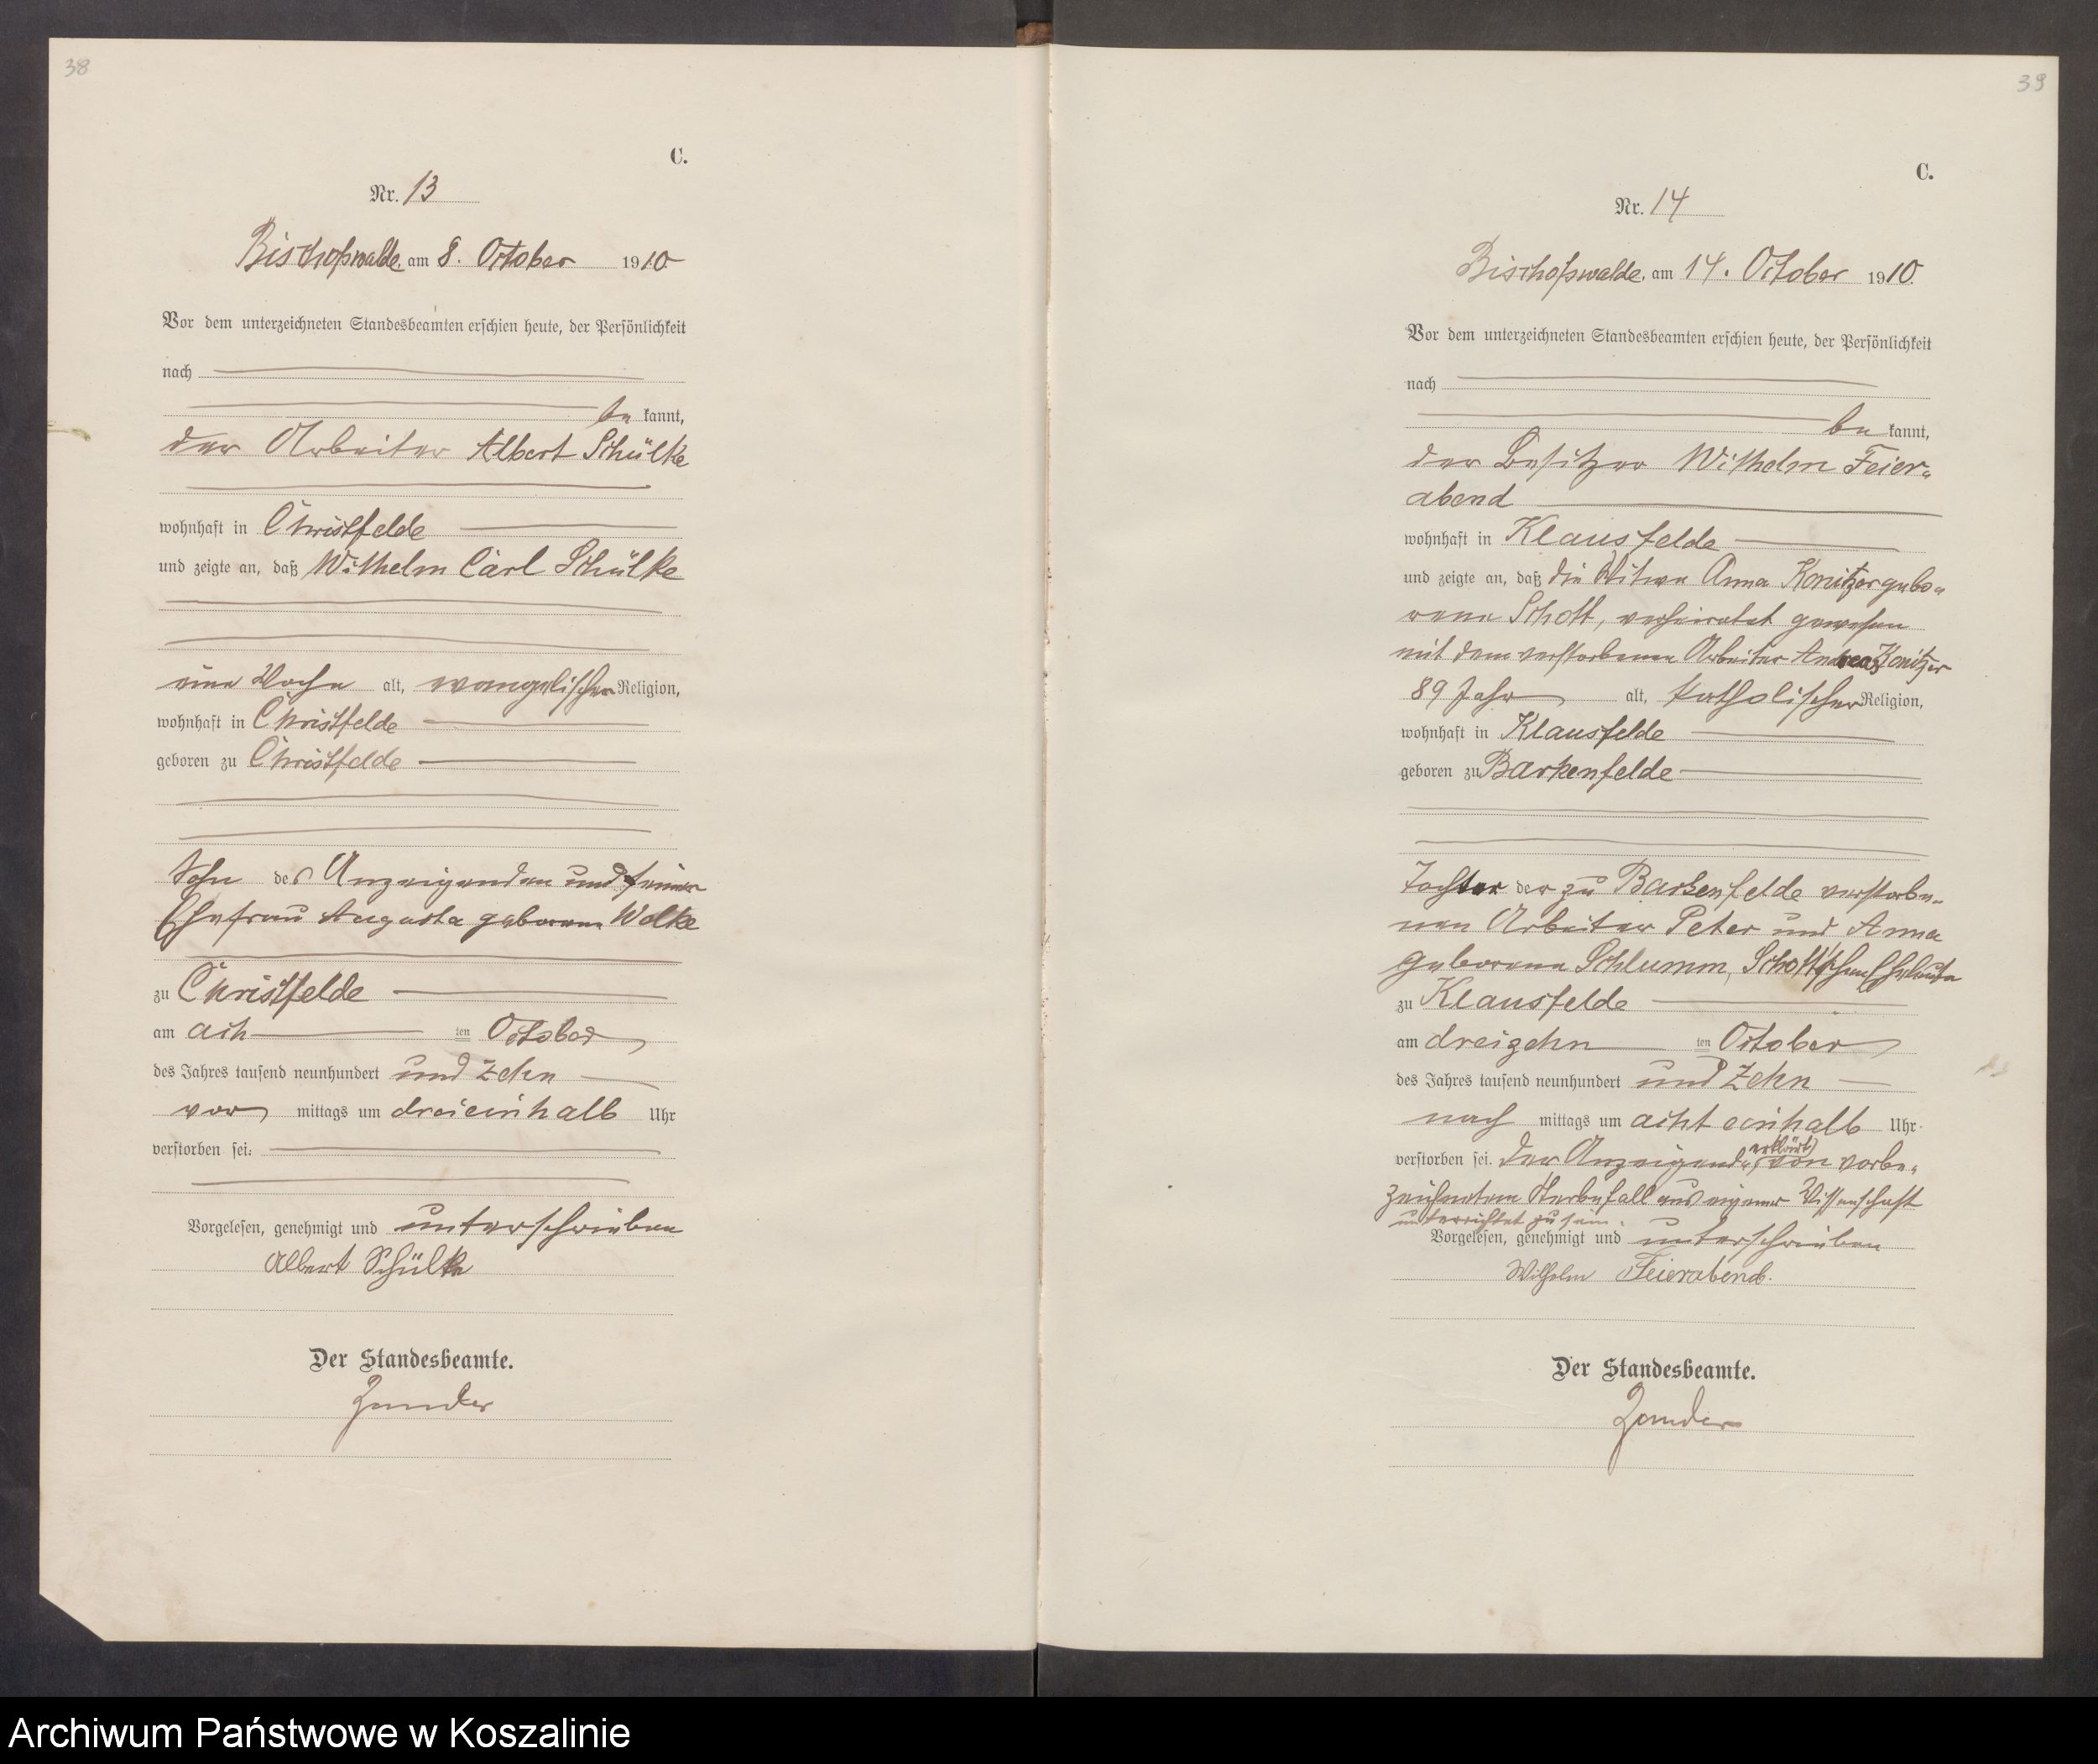 38
C.
Nr. 13
Bischofswalde, am 8. October 1910
Vor dem unterzeichneten Standesbeamten erschien heute, der Persönlichkeit
nach
be kannt,
der Arbeiter Albert Schülke
wohnhaft in Christfelde
und zeigte an, daß Wilhelm Carl Schülke
eine Woche alt, evangelischer Religion,
wohnhaft in Christfelde
geboren zu Christfelde
Sohn des Anzeigenden und seiner
Ehefrau Augusta geborene Wolke
zu Christfelde
am ach ten October
des Jahres tausend neunhundert und zehn
vor mittags um dreieinhalb Uhr
verstorben sei.
Vorgelesen, genehmigt und unterschrieben
Albert Schülke
Der Standesbeamte.
Zander
39
C.
Nr. 14
Bischofswalde, am 14. October 1910.
Vor dem unterzeichneten Standesbeamten erschien heute, der Persönlichkeit
nach
be kannt,
der Besitzer Wilhelm Feier-
abend
wohnhaft in Klausfelde
und zeigte an, daß die Witwe Anna Konitzer gebo-
rene Schott, verheiratet gewesen
mit dem verstorbenen Arbeiter Andreas Konitzer
89 Jahr alt, katholischer Religion,
wohnhaft in Klausfelde
geboren zu Barkenfelde
Tochter der zu Barkenfelde verstorbe-
nen Arbeiter Peter und Anna
geborene Schlumm, Schott'schen Eheleute
zu Klausfelde
am dreizehn ten October
des Jahres tausend neunhundert und zehn
nach mittags um acht einhalb Uhr
verstorben sei. Der Anzeigende erklärt, von vorbe-
zeichnetem Sterbefall aus eigener Wissenschaft
unterrichtet zu sein.
Vorgelesen, genehmigt und unterschrieben
Wilhelm Feierabend.
Der Standesbeamte.
Zander
Archiwum Państwowe w Koszalinie